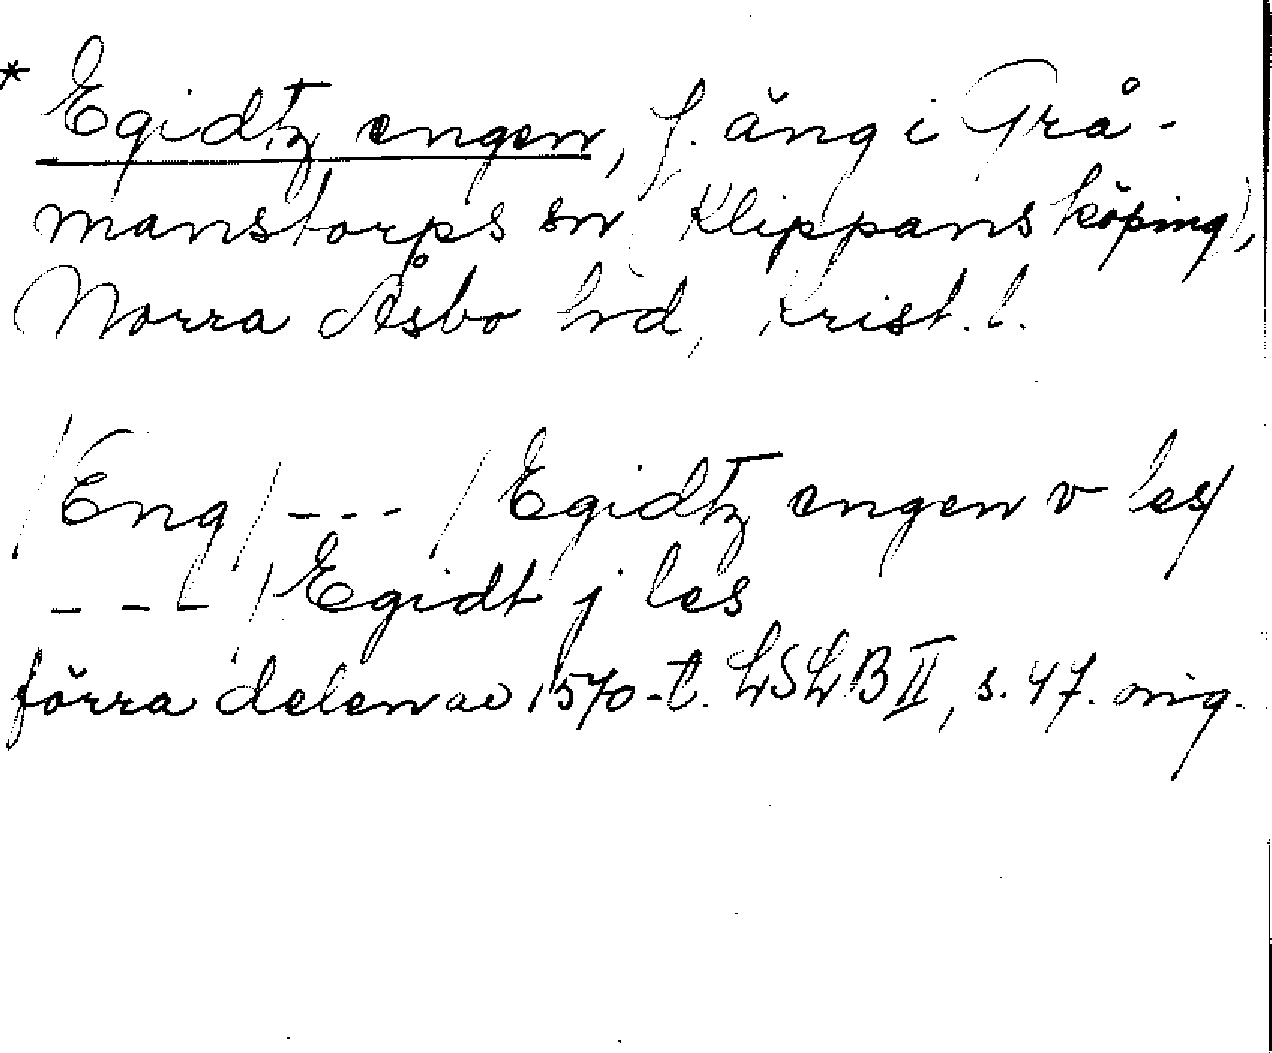 * Egidtz engen, f. äng i Grå-
manstorps sn (Klippans köping),
Norra Åsbo hrd, Krist. l.
/Eng/ --- /Egidtz engen v les/
--- /Egidt j les
förra delen av 1570-t. LSLB II, s. 47. orig.